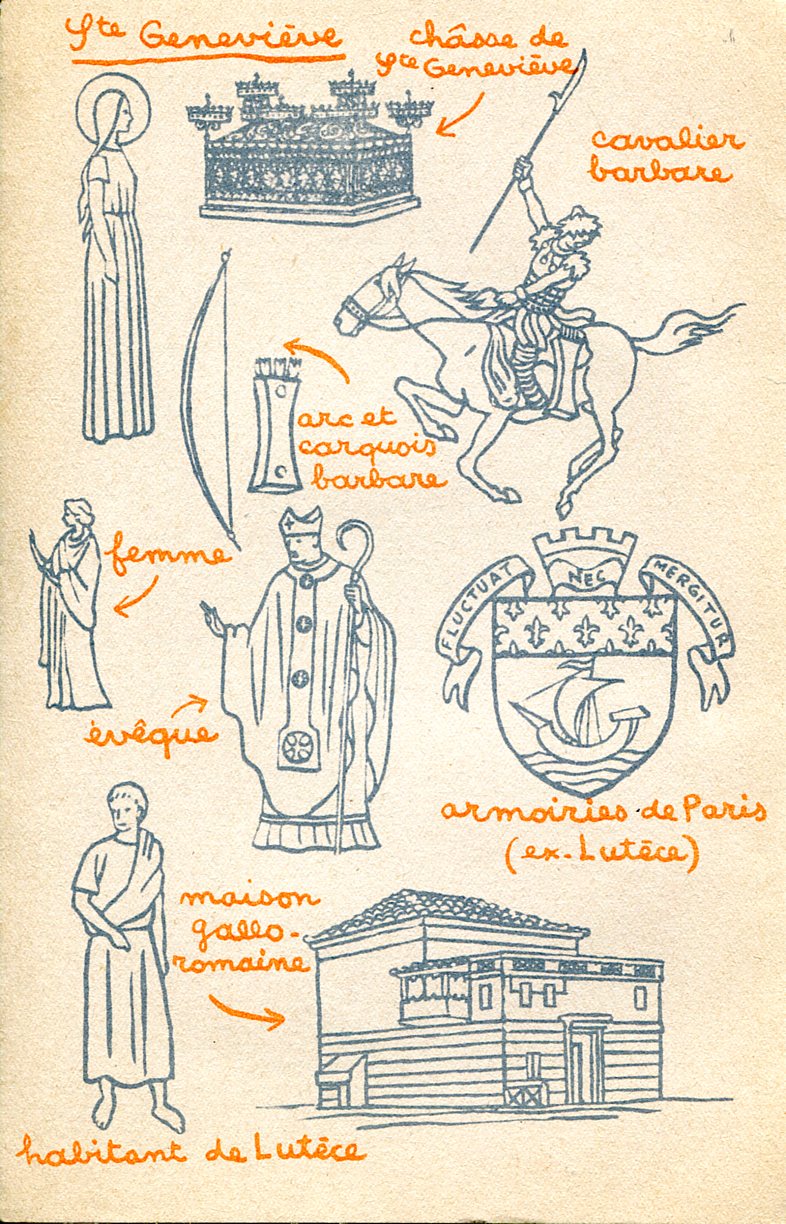 Ste Geneviève
châsse de
Ste Geneviève
cavalier
barbare
arc et
carquois
barbare
femme
évêque
FLUCTUAT NEC MERGITUR
armoiries de Paris
(ex-Lutèce)
maison
gallo-
romaine
habitant de Lutèce